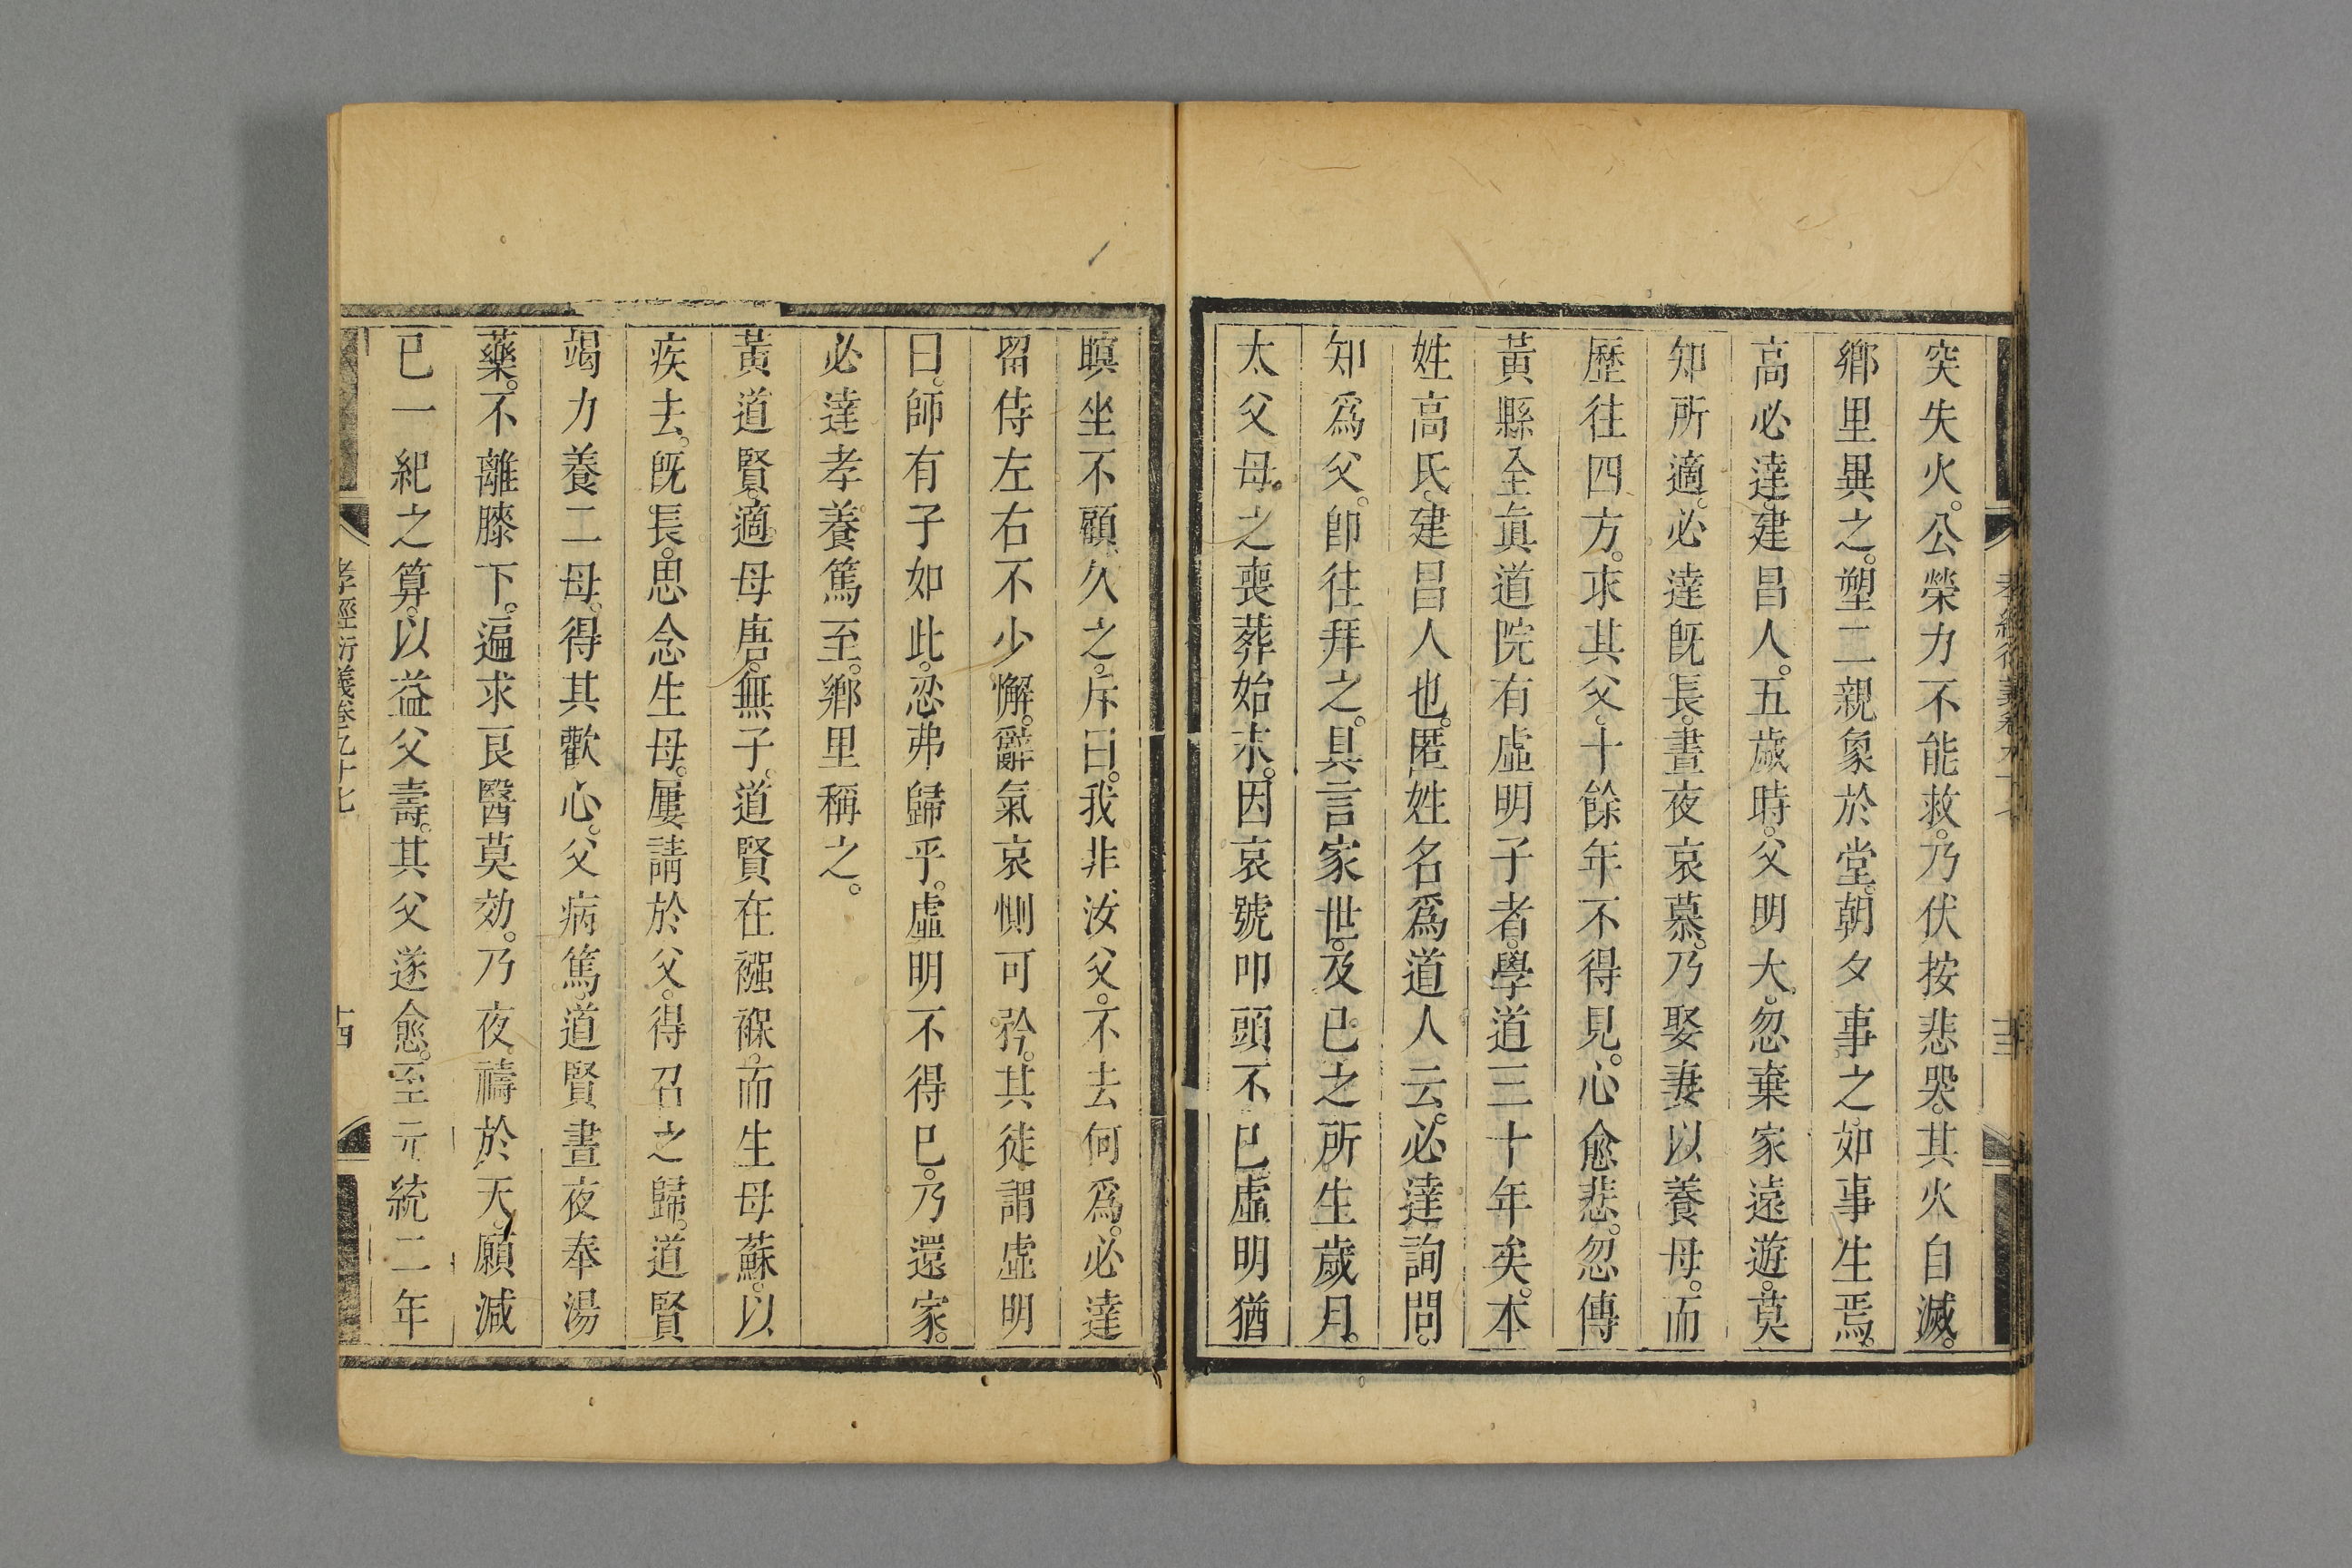 突失火。公榮力不能救。乃伏按悲哭。其火自滅。
鄉里異之。塑二親象於堂。朝夕事之。如事生焉。
高必達。建昌人。五歲時。父明大。忽棄家遠遊。莫
知所適。必達既長。晝夜哀慕。乃娶妻以養母。而
歷往四方。求其父。十餘年不得見。心愈悲。忽傳
黃縣全眞道院有虛明子者。學道三十年矣。本
姓高氏。建昌人也。匿姓名爲道人云。必達詢問。
知爲父。卽往拜之。具言家世。及已之所生歲月。
太父母之喪葬始末。因哀號叩頭不已。虛明猶
瞑坐不顧。久之。斥曰。我非汝父。不去何爲。必達
留侍左右不少懈。辭氣哀惻可矜。其徒謂虛明
曰。師有子如此。忍弗歸乎。虛明不得已。乃還家。
必達孝養篤至。鄉里稱之。
黃道賢。適母唐。無子。道賢在襁褓。而生母蘇。以
疾去。既長。思念生母。屢請於父。得召之歸。道賢
竭力養二母。得其歡心。父病篤。道賢晝夜奉湯
藥。不離膝下。遍求良醫莫効。乃夜禱於天。願減
已一紀之算。以益父壽。其父遂愈。至元統二年
孝經衍義卷九十七
十四